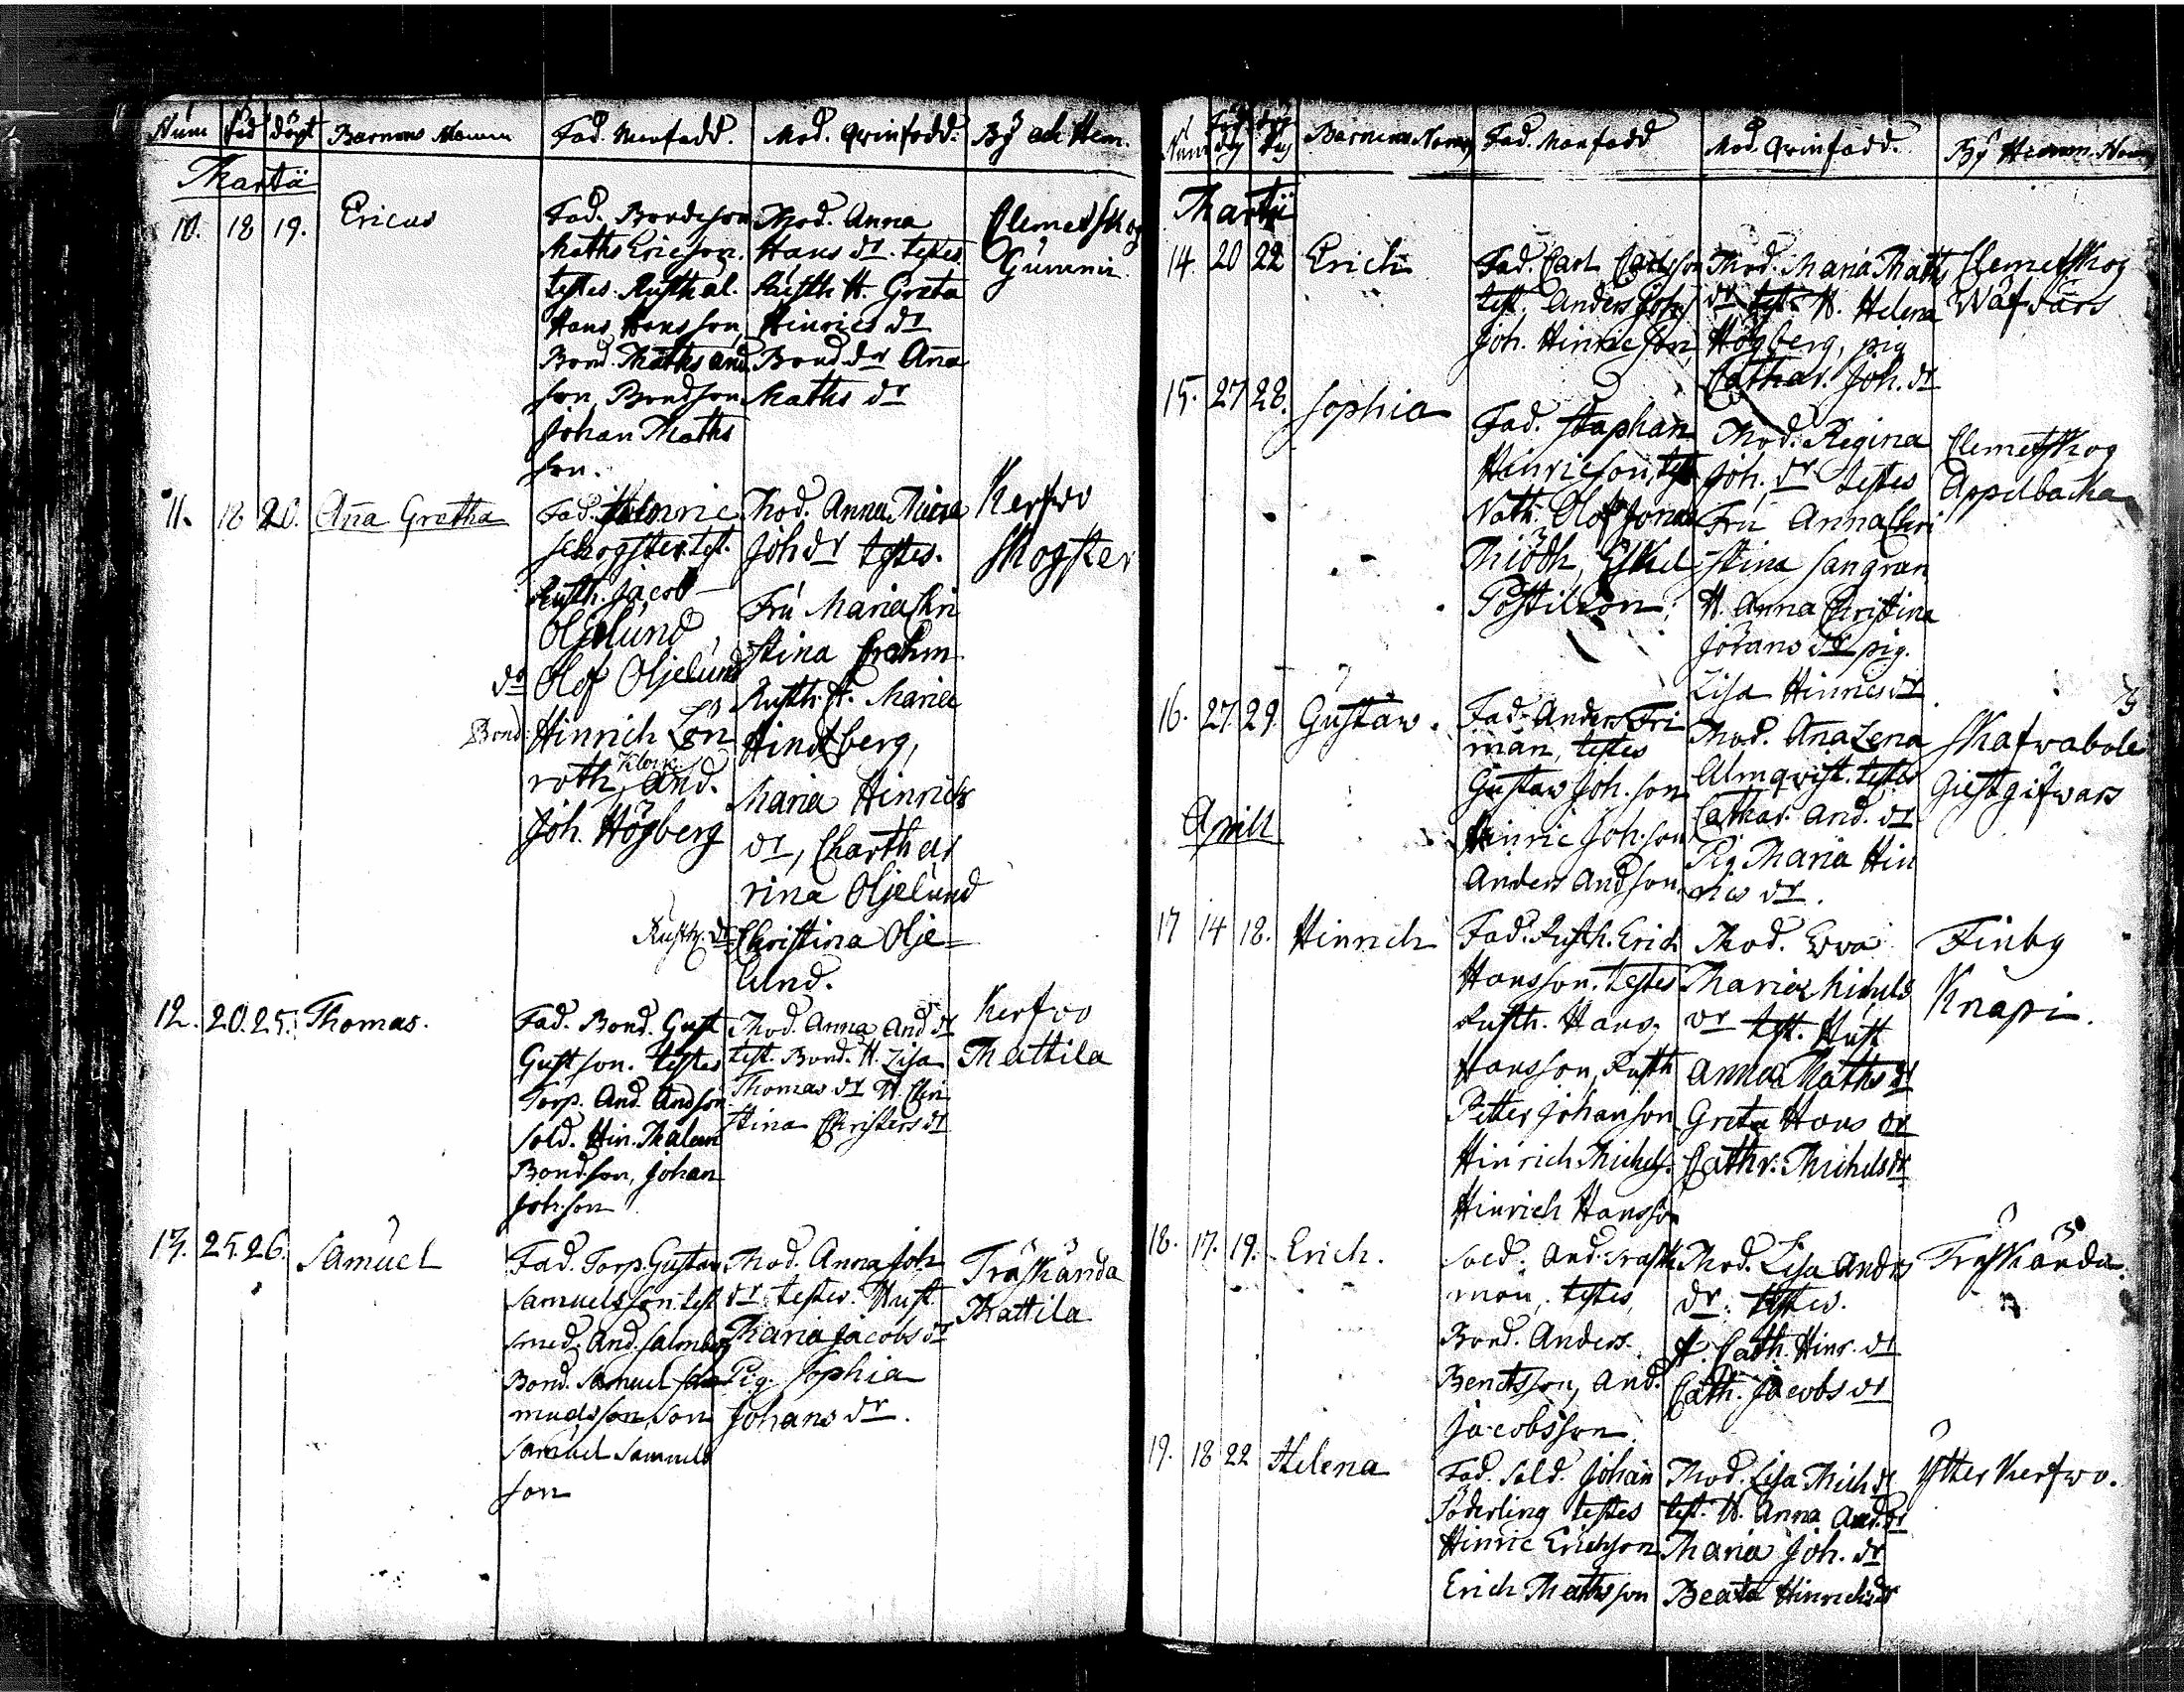 Num född döpt Barnens Namn Fad. Manfadd. Mod. Qvinfadd. By och Hem.
Martii
10. 18 19. Ericus
Fad. Bondeson
Maths Ericson.
testes. Rusthål.
Hans Hansson,
Bond. Maths And
son, Bondson
Johan Maths
son.
Mod. Anna
Hans dr. testes.
Rusth. H. Greta
Hinrics dr
Bond. dr Aña
Maths dr
Clemetskog
Gummir.
11. 18 20. Aña Gretha
Fad. Hinric
Schogster, test.
Rusth. Jacob
Oljelund,
do Olof Oljelund
Bond. Hinrich Lön
roth, Klock. And.
Joh. Högberg
Mod. Anna Maria
Joh dr testes.
Fru Maria Chri
stina Crahm
Rusth. H. Maria
Hindsberg,
Maria Hinrichs
dr, Chartha
rina Oljelund
Rusth. dr Christina Olje=
lund.
Kerfvo
Skogster
12. 20. 25. Thomas.
Fad. Bond. Gust
Gustson. testes
Torp. And. Andson
Sold. Hin. Malem
Bondson, Johan
Johson
Mod. Anna And dr
test. Bond. H. Lisa
Thomas dr H. Chri
stina Christers dr
Kerfvo
Mattila
13. 25. 26. Samuel
Fad. Torp. Gustav
Samuelsson. test
Smed. And. Salmberg
Bond. Samuel Sa
muelsson, son
Samuel Samuels
son
Mod. Anna Joh
dr. testes. Hust
Maria Jacobs dr
Pig. Sophia
Johans dr.
Träskända
Mattila
Num Föd dag Döp dag Barnens Namn Fad. Manfadd Mod. Qvinfadd. By Hemm. Namn
Martii
14. 20 22 Erich
Fad. Carl Carlsson
test. Anders Johs
Joh. Hinricson
Mod. Maria Maths
dr test. H. Helena
Högberg, pig
Cathar. Joh. dr
Clemetskog
Wäfvars
15. 27 28. Sophia
Fad. Staphan
Hinricson, test
Nath. Olof Jonas
Miödh, Eskel
Postilion.
Mod. Regina
Joh. dr testes
Fru Anna Chri
stina Sangren
H. Anna Christina
Jörans dr pig.
Lisa Hinrics dr
Clemetskog
Appelbacka
16. 27. 29. Gustaw.
Fad. Anders Fri
man, testes
Gustaw Joh. son
Hinric Joh. son
Anders Andson
Mod. Aña Lena
Almqvist. testes
Cathar. And. dr
Pig Maria Hin
rics dr.
Skafvabole
Giestgifwars
Aprill
17 14 18. Hinrich
Fad. Rusth. Erich
Hansson. testes
Rusth. Hans
Hansson, Rusth
Petter Johanson
Hinrich Michels.
Hinrich Hansson
Mod. Ewa
Maria Michels
dr test. Hust
Anna Maths dr
Greta Hans dr
Cathr. Michels dr
Finby
Knapi.
18. 17. 19. Erich.
Sold. And. Trask
man, testes,
Bond. Anders
Bendtsson, And.
Jacobsson.
Mod. Lisa Anders
dr. testes.
H. Cath. Hinr. dr
Cath. Jacobs dr
Träskända.
19. 18 22 Helena
Fad. Sold. Johan
Söderling testes
Hinric Erichson
Erich Mathsson
Mod. Lisa Mich dr
test. H. Anna And. dr
Maria Joh. dr
Beata Hinrichs dr
Ytter Kerfwo.